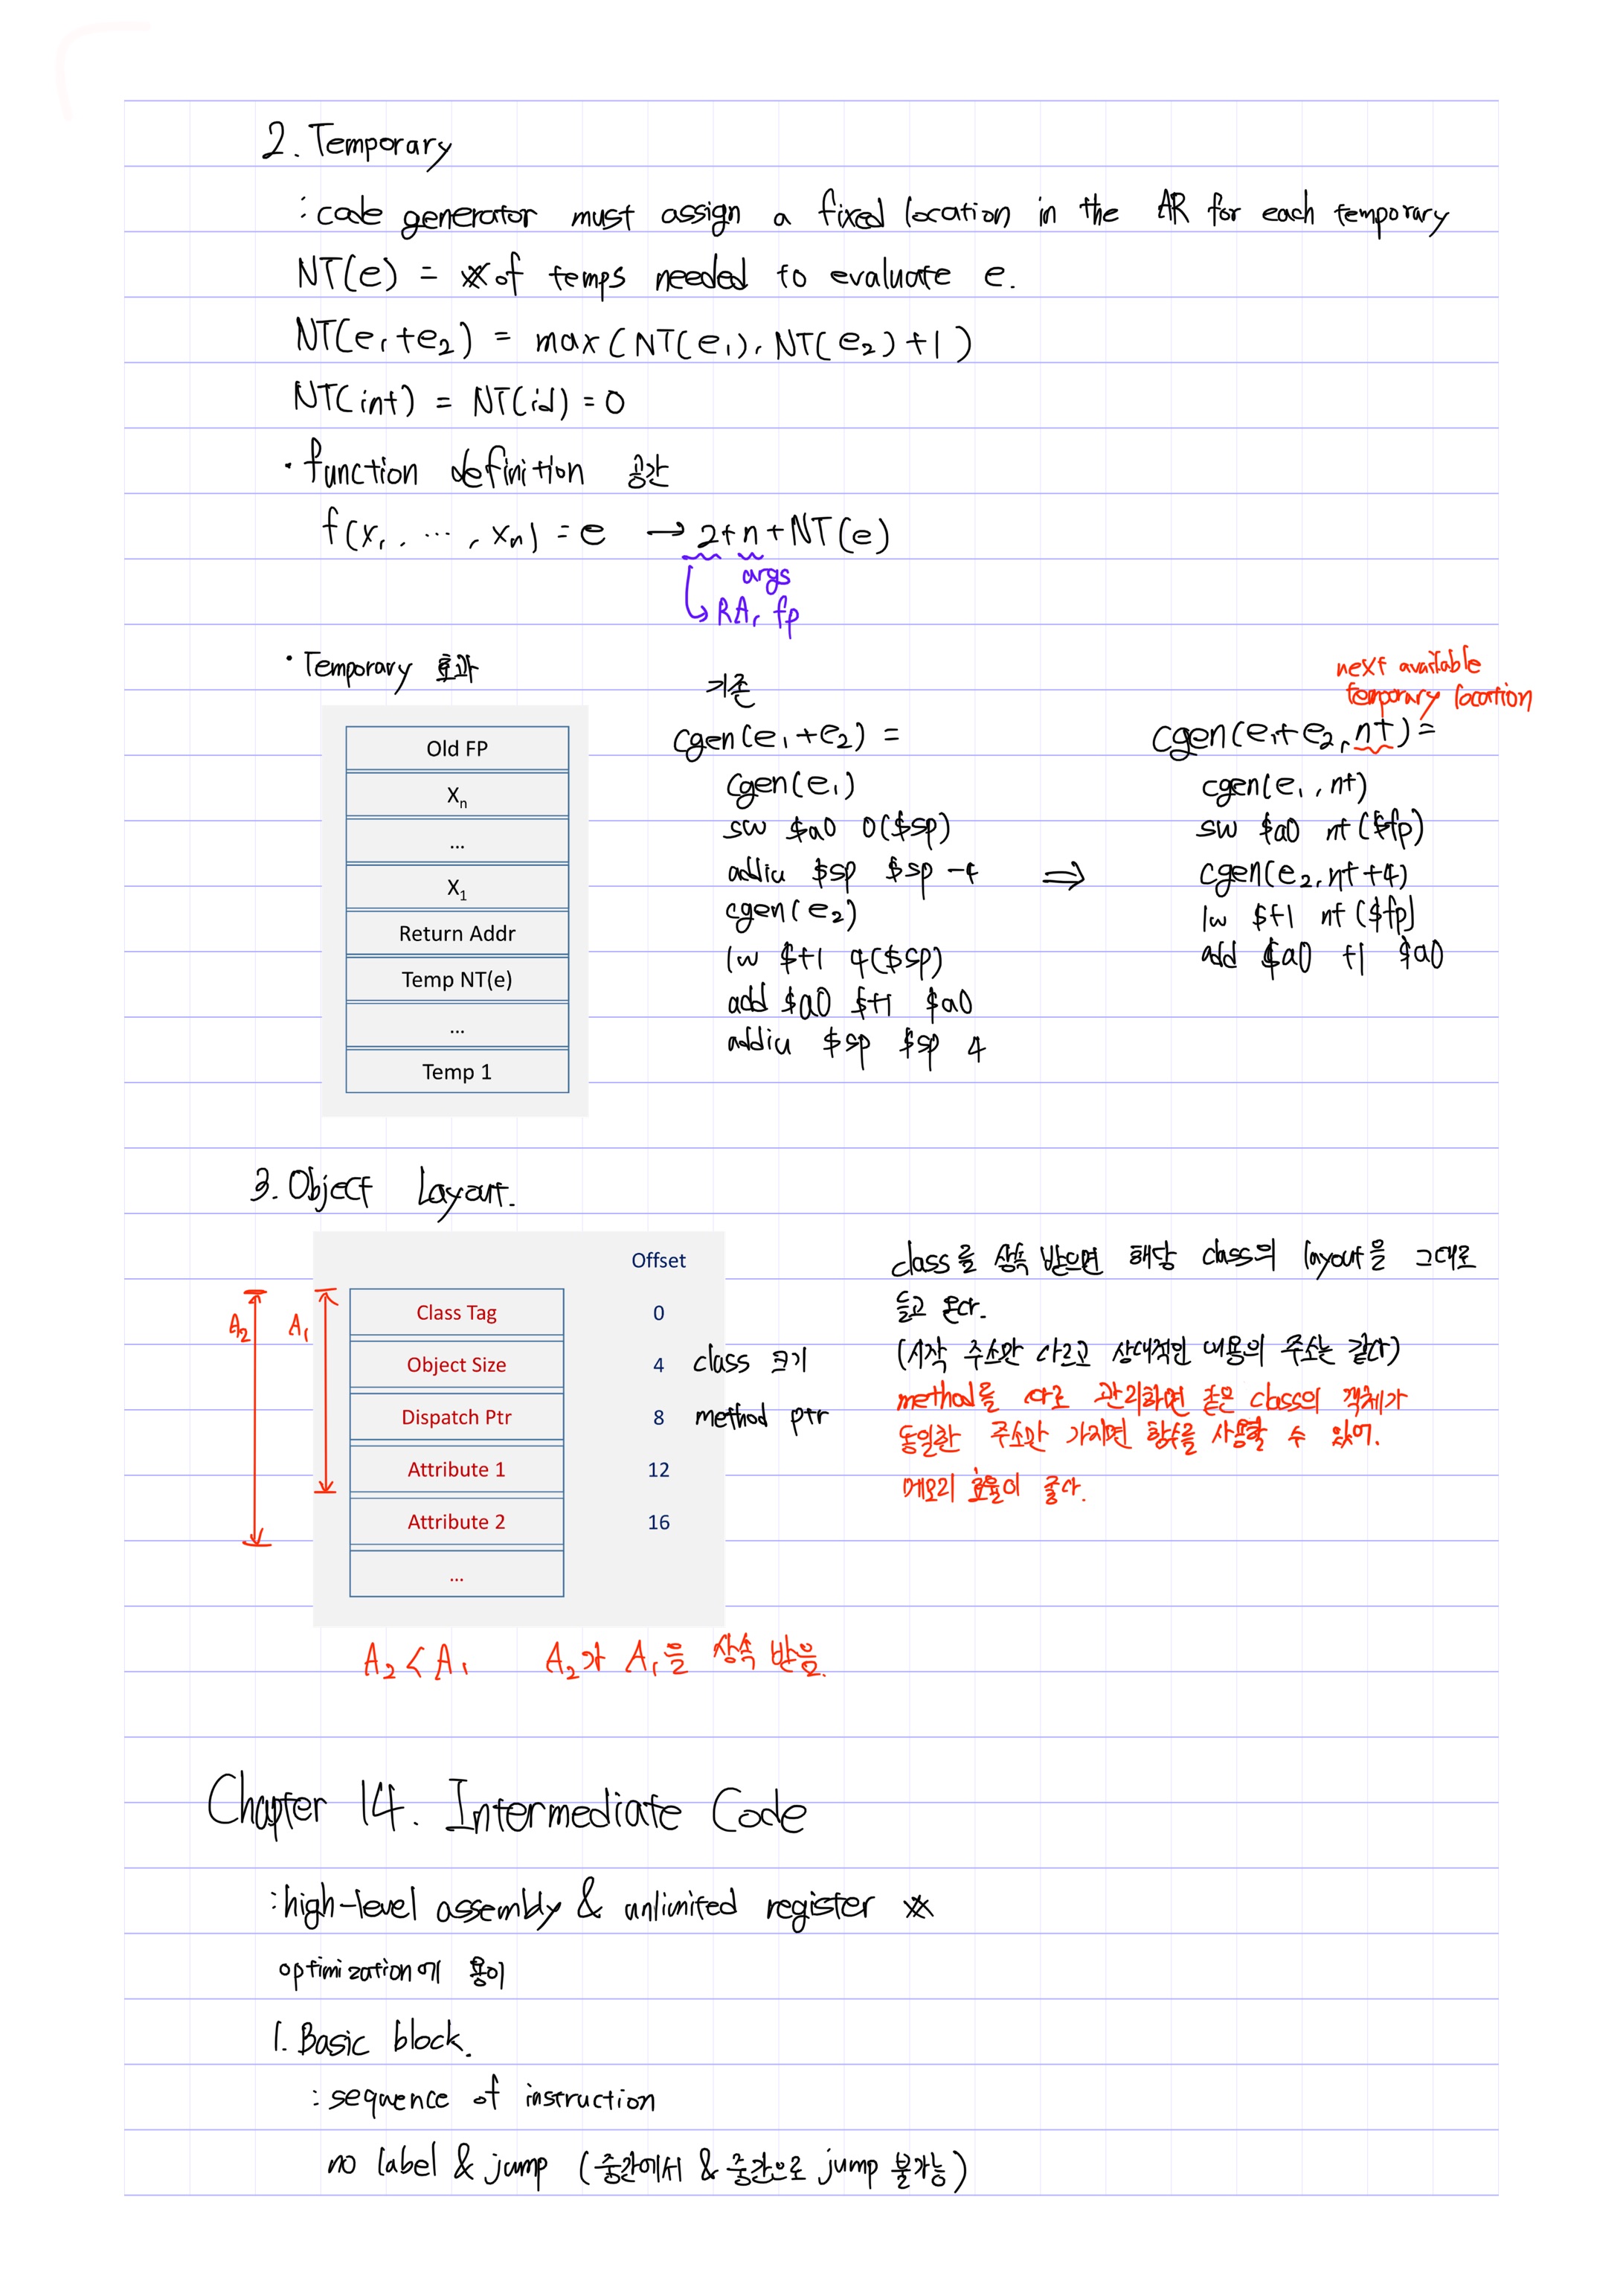 2. Temporary
: code generator must assign a fixed location in the AR for each temporary
NT(e) = # of temps needed to evaluate e.
NT(e₁+e₂) = max(NT(e₁), NT(e₂)+1)
NT(int) = NT(id) = 0
· function definition 공간
f(x₁, ..., xₙ) = e → 2+n+NT(e)
args
RA, fp
· Temporary 효과
Old FP
Xn
...
X1
Return Addr
Temp NT(e)
...
Temp 1
기존
cgen(e₁+e₂) =
cgen(e₁)
sw $a0 0($sp)
addiu $sp $sp -4
cgen(e₂)
lw $t1 4($sp)
add $a0 $t1 $a0
addiu $sp $sp 4
⇒
next available
temporary location
cgen(e₁+e₂, nt) =
cgen(e₁, nt)
sw $a0 nt($fp)
cgen(e₂, nt+4)
lw $t1 nt($fp)
add $a0 t1 $a0
3. Object Layout.
Offset
A₂ A₁ Class Tag 0
Object Size 4 class 크기
Dispatch Ptr 8 method ptr
Attribute 1 12
Attribute 2 16
...
class를 상속 받으면 해당 class의 layout을 그대로
들고 온다.
(시작 주소만 다르고 상대적인 내용의 주소는 같다)
method를 따로 관리하면 같은 class의 객체가
동일한 주소만 가지면 함수를 사용할 수 있어.
메모리 효율이 좋다.
A₂ < A₁ A₂가 A₁을 상속 받음.
Chapter 14. Intermediate Code
: high-level assembly & unlimited register ※
optimization에 용이
1. Basic block.
: sequence of instruction
no label & jump (중간에서 & 중간으로 jump 불가능)